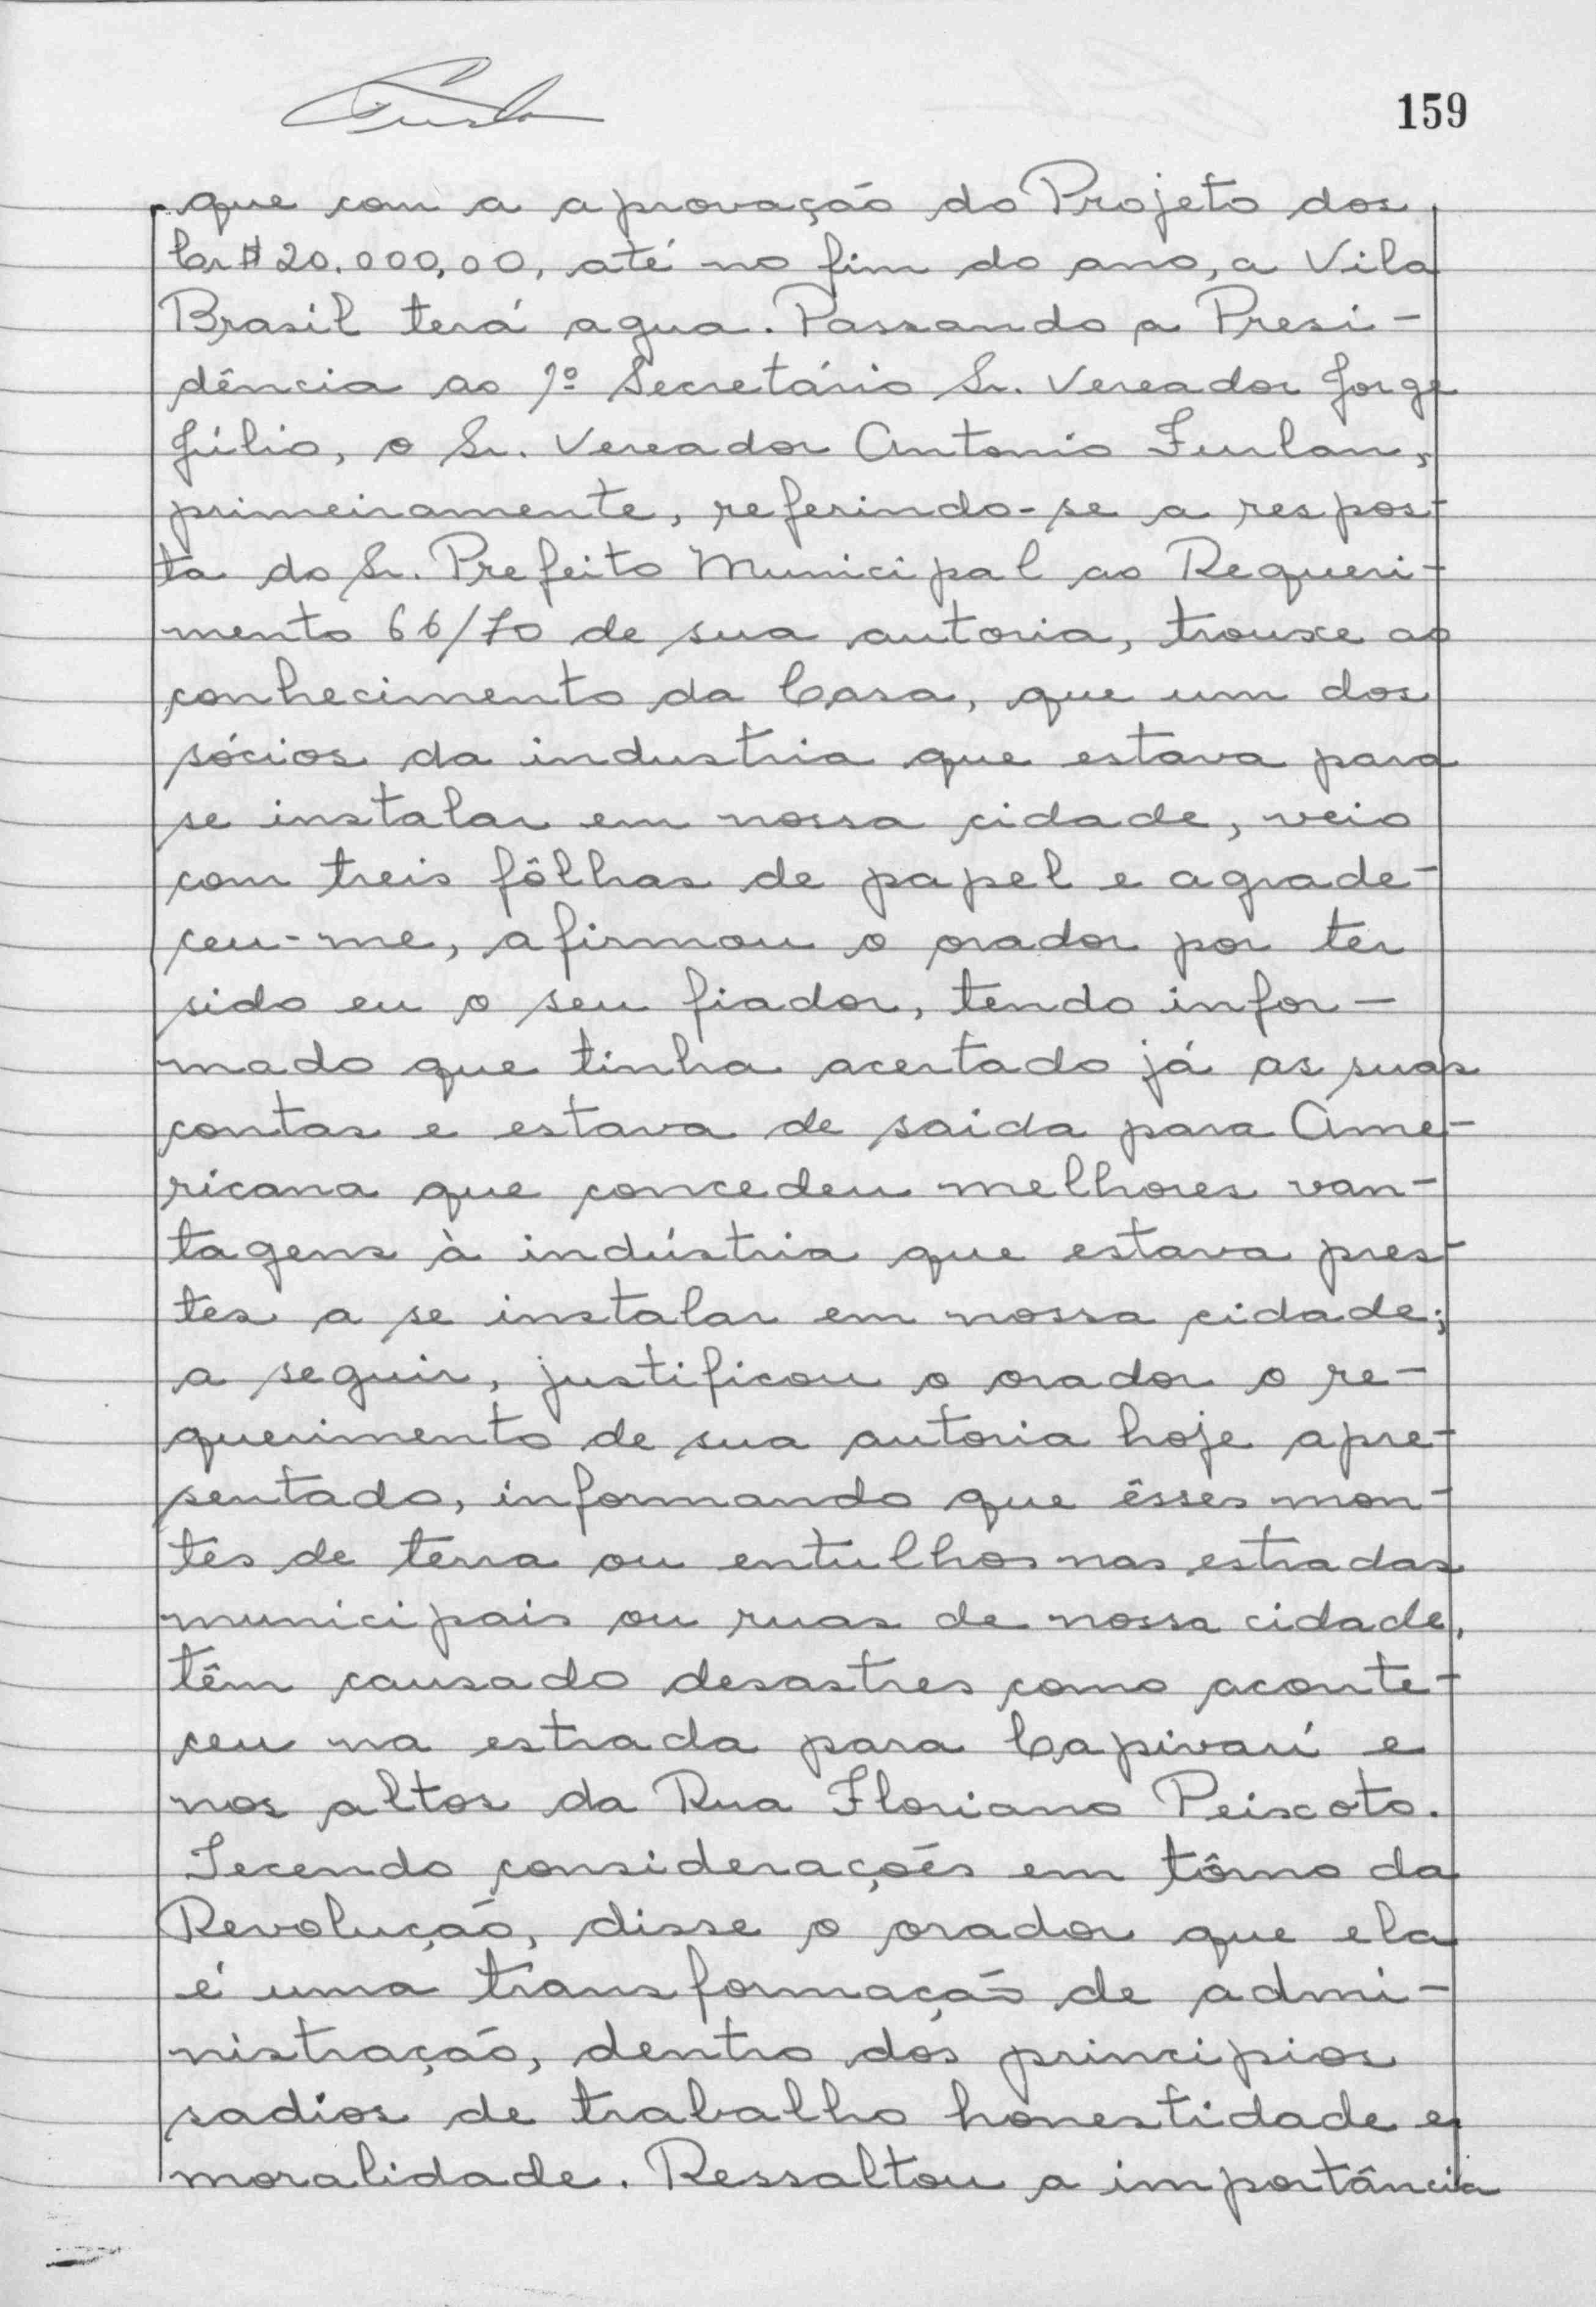 159
que com a aprovação do Projeto dos
Cr$20.000,00, até no fim do ano, a Vila
Brasil terá agua. Passando a Presi-
dência ao 1º Secretário Sr. Vereador Jorge
Júlio, o Sr. Vereador Antonio Furlan,
primeiramente, referindo-se a respos-
ta do Sr. Prefeito Municipal ao Requeri-
mento 66/70 de sua autoria, trouxe ao
conhecimento da Casa, que um dos
sócios da industria que estava para
se instalar em nossa cidade, veio
com treis fôlhas de papel e agrade-
ceu-me, afirmou o orador por ter
sido eu o seu fiador, tendo infor-
mado que tinha acertado já as suas
contas e estava de saida para Ame-
ricana que concedeu melhores van-
tagens à indústria que estava pres-
tes a se instalar em nossa cidade;
a seguir, justificou o orador o re-
querimento de sua autoria hoje apre-
sentado, informando que êsses mon-
tes de terra ou entulhos nas estradas
municipais ou ruas de nossa cidade,
têm causado desastres como aconte-
ceu na estrada para Capivarí e
nos altos da Rua Floriano Peixoto.
Tecendo considerações em tôrno da
Revolução, disse o orador que ela
é uma transformação de admi-
nistração, dentro dos principios
sadios de trabalho honestidade e
moralidade. Ressaltou a importância